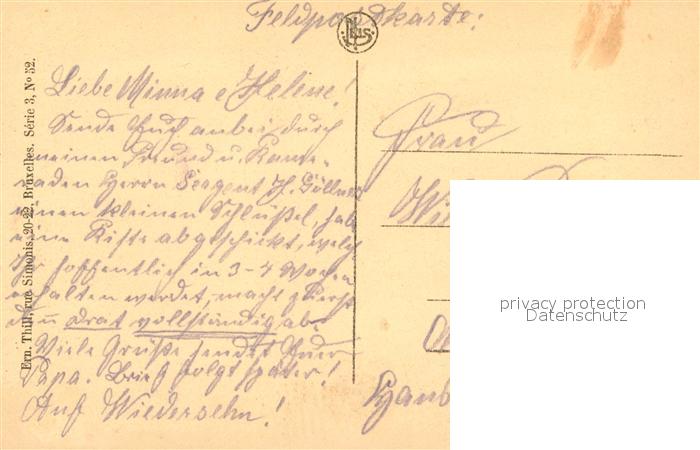 Feldpostkarte:
Liebe Minna e Helene!
Sende Euch anbei durch
meinen Freund u. Kame-
raden Herrn Sergent H. Göllner
einen kleinen Schlüßel, hab
eine Kiste abgeschickt, welche
Ihr hoffentlich in 3-4 Wochen
erhalten werdet, macht zuerst
den Drat vollständig ab.
Viele Grüße sendet Euer
Papa. Brief folgt später!
Auf Wiedersehn!
Ern. Thill, rue Simonis, 20-22, Bruxelles. Série 3, No 52.
Frau
privacy protection
Datenschutz